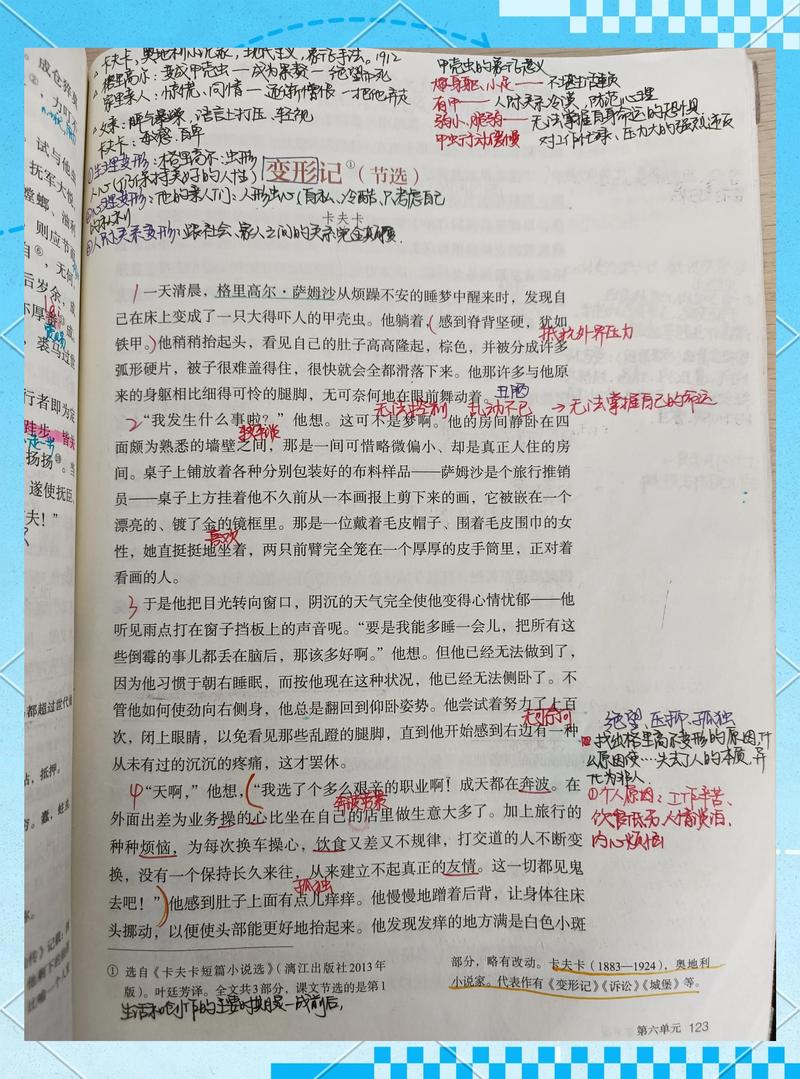 卡夫卡，奥地利小说家，现代主义，象征手法。1912
格里高尔：变成甲壳虫—成为累赘—绝望而死
家里亲人：惊慌、同情—逐渐憎恨—把他弃走
父亲：脾气暴躁，语言上打压，轻视
卡夫卡：敏感，自卑
①生理变形：格里高尔：虫形
人心（仍保持美好的人性）
②心理变形：他的亲人们：人形虫心（自私、冷酷，只考虑自己
的利
③人际关系变形：跟社会、家人之间的关系完全颠覆.
甲壳虫的象征意义
—不堪生活重负
有甲——人际关系冷漠 防范心理
弱小、脆弱——无法掌握自身命运的恐惧
甲虫行动缓慢 对工作忙碌、压力大的强烈违反
变形记①（节选）
卡夫卡
1 一天清晨，格里高尔·萨姆沙从烦躁不安的睡梦中醒来时，发现自
己在床上变成了一只大得吓人的甲壳虫。他躺着，（感到脊背坚硬，犹如
铁甲。）他稍稍抬起头，看见自己的肚子高高隆起，棕色，并被分成许多
抵抗外界压力
弧形硬片，被子很难盖得住，很快就会全都滑落下来。他那许多与他原
来的身躯相比细得可怜的腿脚，无可奈何地在眼前舞动着。
丑陋
无法控制 乱动不已 →无法掌握自己的命运
2 “我发生什么事啦？”他想。这可不是梦啊。他的房间静卧在四
面颇为熟悉的墙壁之间，那是一间可惜略微偏小、却是真正住人的房
间。桌子上铺放着各种分别包装好的布料样品——萨姆沙是个旅行推销
员——桌子上方挂着他不久前从一本画报上剪下来的画，它被嵌在一个
漂亮的、镀了金的镜框里。那是一位戴着毛皮帽子、围着毛皮围巾的女
喜欢
性，她直挺挺地坐着，两只前臂完全笼在一个厚厚的皮手筒里，正对着
看画的人。
3 于是他把目光转向窗口，阴沉的天气完全使他变得心情忧郁——他
听见雨点打在窗子挡板上的声音呢。“要是我能多睡一会儿，把所有这
些倒霉的事儿都丢在脑后，那该多好啊。”他想。但他已经无法做到了，
因为他习惯于朝右睡眠，而按他现在这种状况，他已经无法侧卧了。不
管他如何使劲向右侧身，他总是翻回到仰卧姿势。他尝试着努力了上百
无可奈何
次，闭上眼睛，以免看见那些乱蹬的腿脚，直到他开始感到右边有一种
从未有过的沉沉的疼痛，这才罢休。
4 “天啊，”他想，（“我选了个多么艰辛的职业啊！成天都在奔波。在
奔波劳累
外面出差为业务操的心比坐在自己的店里做生意大多了。加上旅行的
种种烦恼，为每次换车操心，饮食又差又不规律，打交道的人不断变
换，没有一个保持长久来往，从来建立不起真正的友情。这一切都见鬼
孤独
去吧！”）他感到肚子上面有点儿痒痒。他慢慢地蹭着后背，让身体往床
头挪动，以便使头部能更好地抬起来。他发现发痒的地方满是白色小斑
绝望、压抑、孤独
找出格里高尔变形的原因，什
么原因使…失去了人的本质，异
化为非人.
①个人原因：工作辛苦、
饮食低劣、人情淡泊，
内心烦恼
① 选自《卡夫卡短篇小说选》（漓江出版社2013年
版）。叶廷芳译。全文共3部分，课文节选的是第1
部分，略有改动。卡夫卡（1883—1924），奥地利
小说家。代表作有《变形记》《诉讼》《城堡》等。
生活和创作的主要时期是一战前后，
第六单元 123